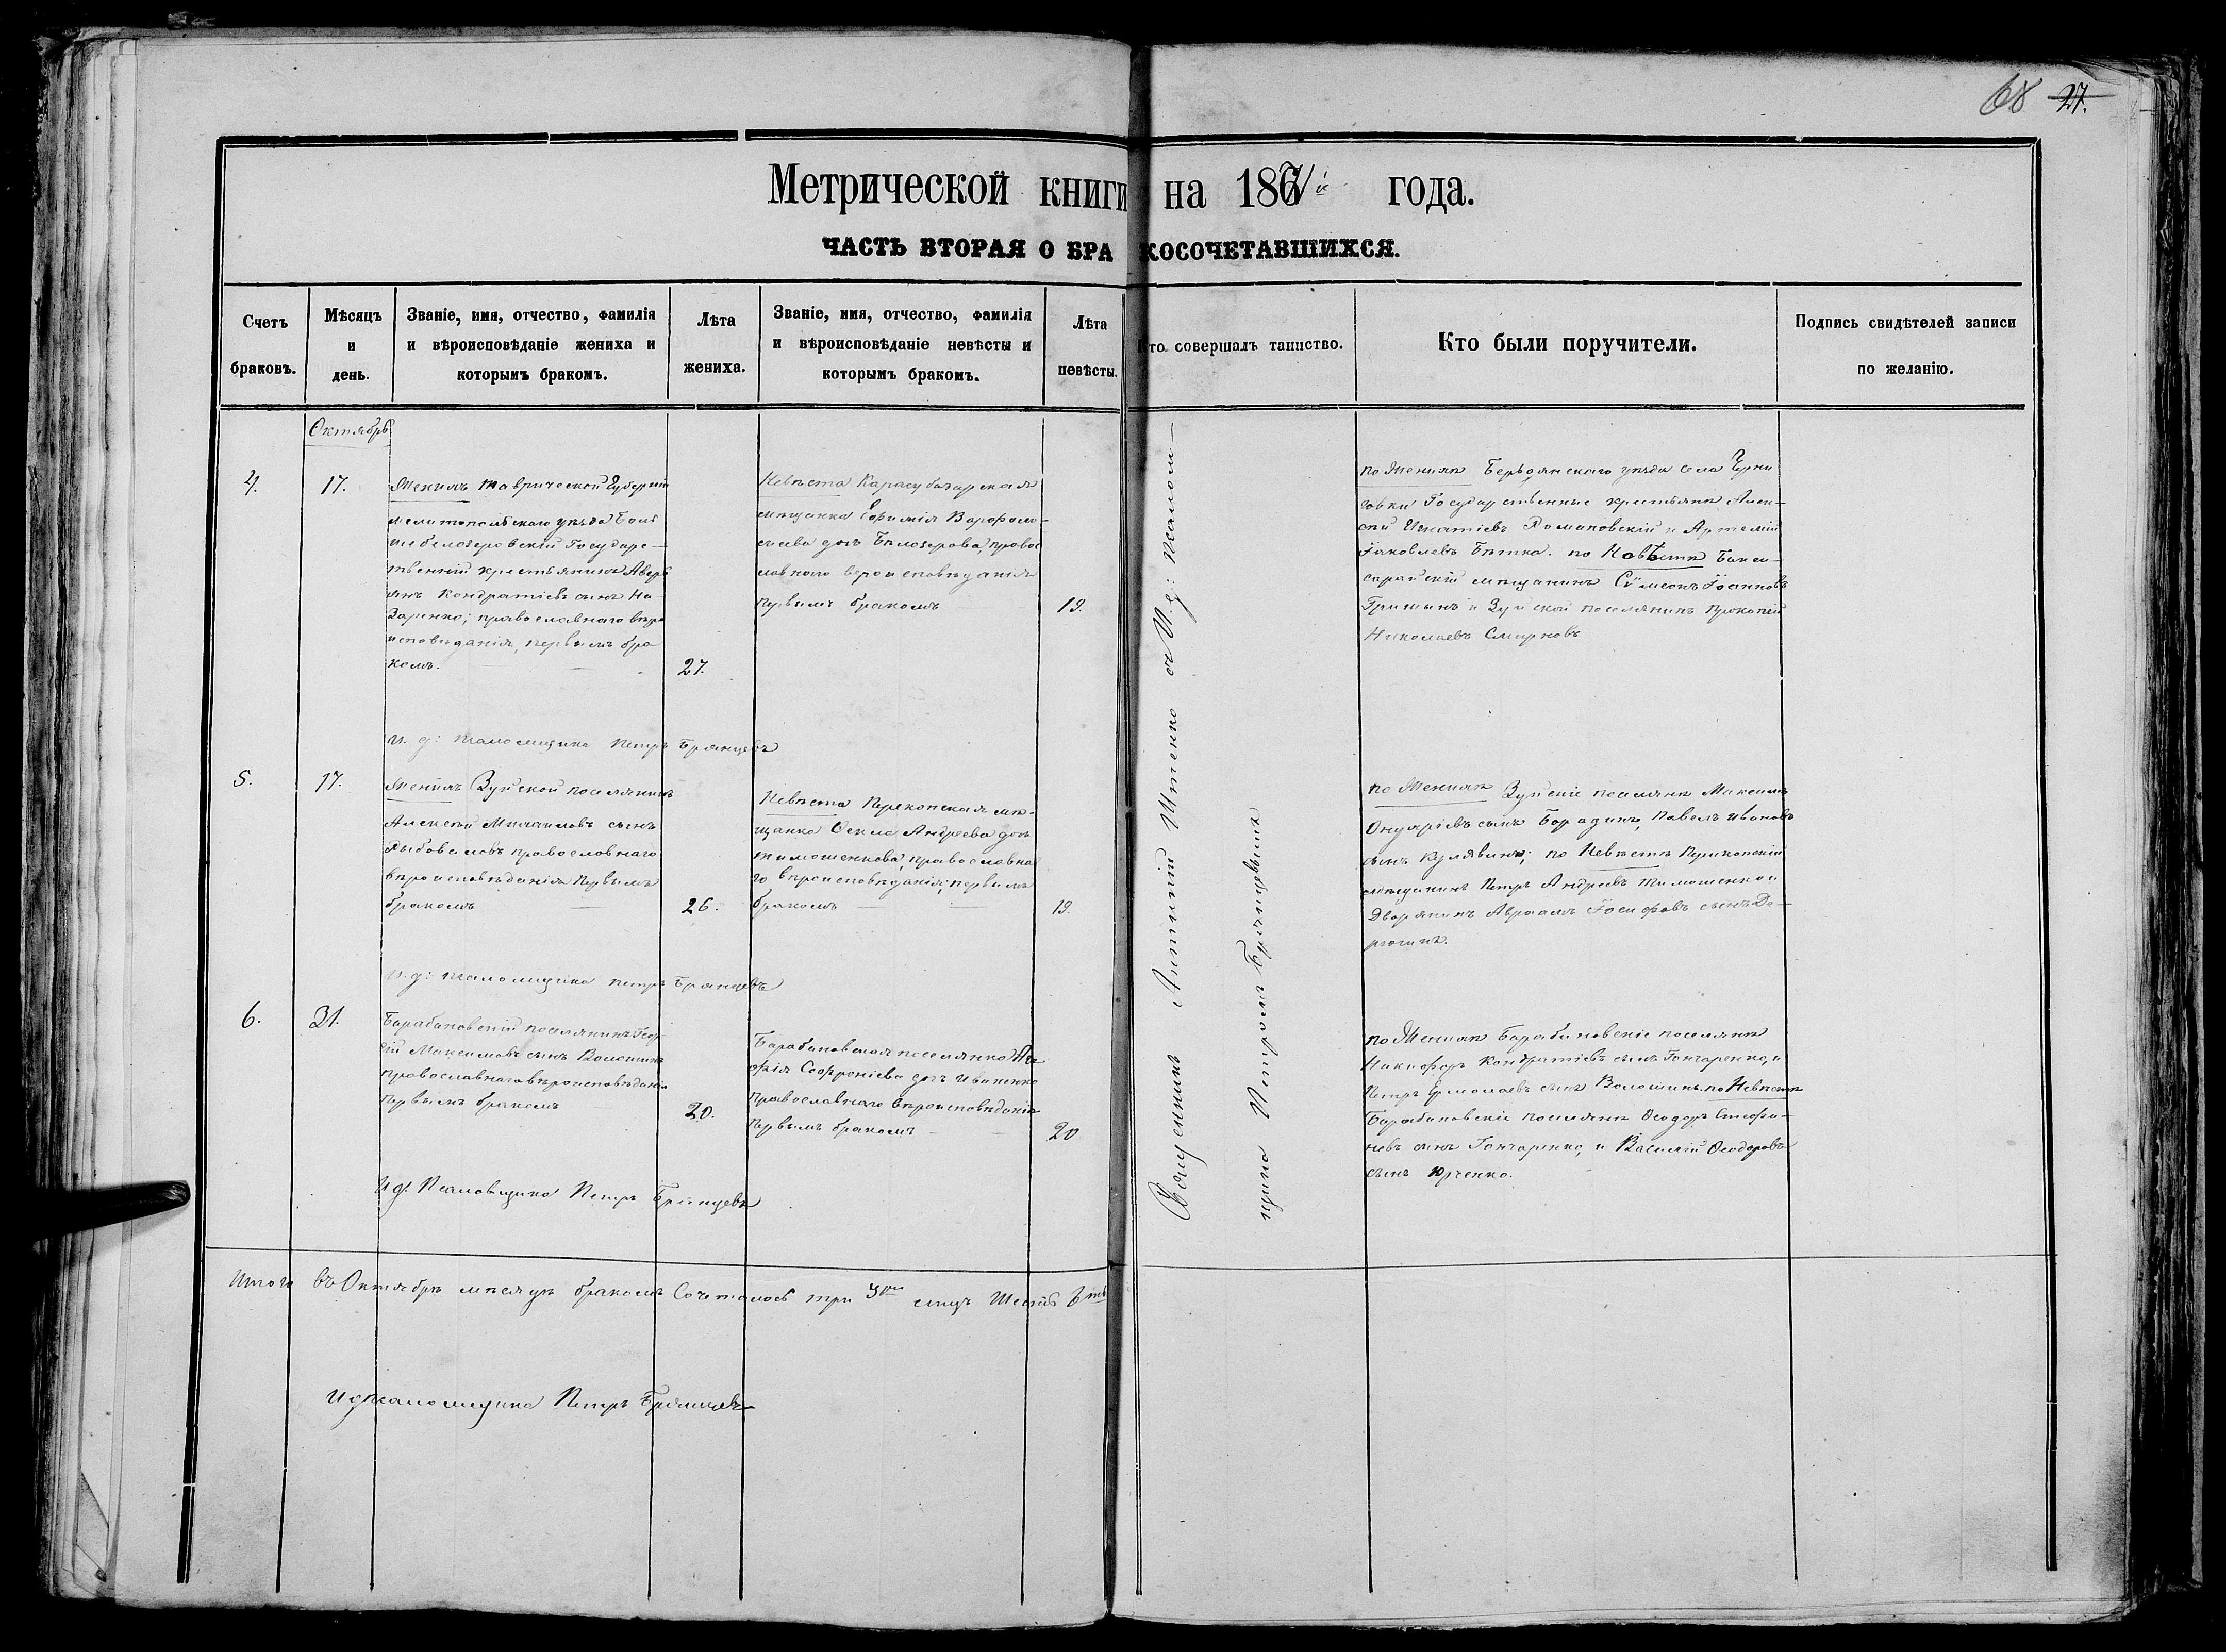 68 27.
Метрической книги на 187 года.
ЧАСТЬ ВТОРАЯ О БРАКОСОЧЕТАВШИХСЯ.
Счетъ браковъ.
Мѣсяцъ и день.
Званіе, имя, отчество, фамилія и вѣроисповѣданіе жениха и которымъ бракомъ.
Лѣта жениха.
Званіе, имя, отчество, фамилія и вѣроисповѣданіе невѣсты и которымъ бракомъ.
Лѣта невѣсты.
Кто совершалъ таинство.
Кто были поручители.
Подпись свидѣтелей записи по желанію.
Октябрь
4.
17.
Женихъ Таврической Губерніи
мелитопольскаго уѣзда Боль
ше белозеровскій Государс-
твенный крестьянинъ Аверь
янъ Кондратіевъ сынъ На-
заренко; православнаго вѣро
исповѣданія, первымъ бра
комъ.
27.
Невѣста Карасубазарская
мѣщанка Евфимія Варфоло-
меева дочь Бѣлозерова, правос
лавнаго вероисповѣданія
первымъ бракомъ
19.
по Женихѣ Бердянскаго уѣзда села Черни
говки Государственные крестьяне Алек-
сѣй Игнатіевъ Романовскій и Артемій
Іаковлевъ Бѣтка. по Невѣстѣ Бахчи-
сарайскій мѣщанинъ Сѵмеонъ Іоанновъ
Гришинъ и Зуйской поселянинъ Прокопій
Николаевъ Смирновъ
И. д: псаломщика Петръ Брянцевъ
5.
17.
Женихъ Зуйской поселянинъ
Алексѣй Михаиловъ сынъ
Рыбоваловъ православнаго
вѣроисповѣданія первымъ
бракомъ
26.
Невѣста Перекопская мѣ-
щанка Ѳекла Андреева дочь
Тимошенкова, православна
го вѣроисповѣданія; первымъ
бракомъ
19.
по Женихѣ Зуйскіе поселяне Максимъ
Онуфріевъ сынъ Борадинъ, Павелъ Ивановъ
сынъ Кулявинъ; по Невѣстѣ Перекопскій
мѣщанинъ Петръ Андреевъ Тимошенко и
Дворянинъ Авраамъ Іосифовъ сынъ До-
И. д: псаломщика Петръ Брянцевъ
6.
31.
Барабановскій поселянинъ Геор
гій Максимовъ сынъ Волошинъ
православнаго вѣроисповѣданія
первымъ бракомъ
20.
Барабановская поселянка Ага
фія Софроніева дочь Иваненко
православнаго вѣроисповѣданія
первымъ бракомъ
20
по Женихѣ Барабановскіе поселяне
Никифоръ Кондратіевъ сынъ Гончаренко, и
Петръ Ермолаевъ сынъ Волошинъ. по Невѣстѣ
Барабановскіе поселяне Ѳеодоръ Стефа-
невъ сынъ Гончаренко, и Василій Ѳеодоровъ
сынъ Юрченко.
И д: Псаломщика Петръ Брянцевъ
Священникъ Антоній Штенко съ И. д: псалом-
щика Петромъ Брянцевымъ
Итого въ Октябрѣ мѣсяцѣ бракомъ Сочеталось три 3ри лицъ Шесть 6ть
И д Псаломщика Петръ Брянцевъ